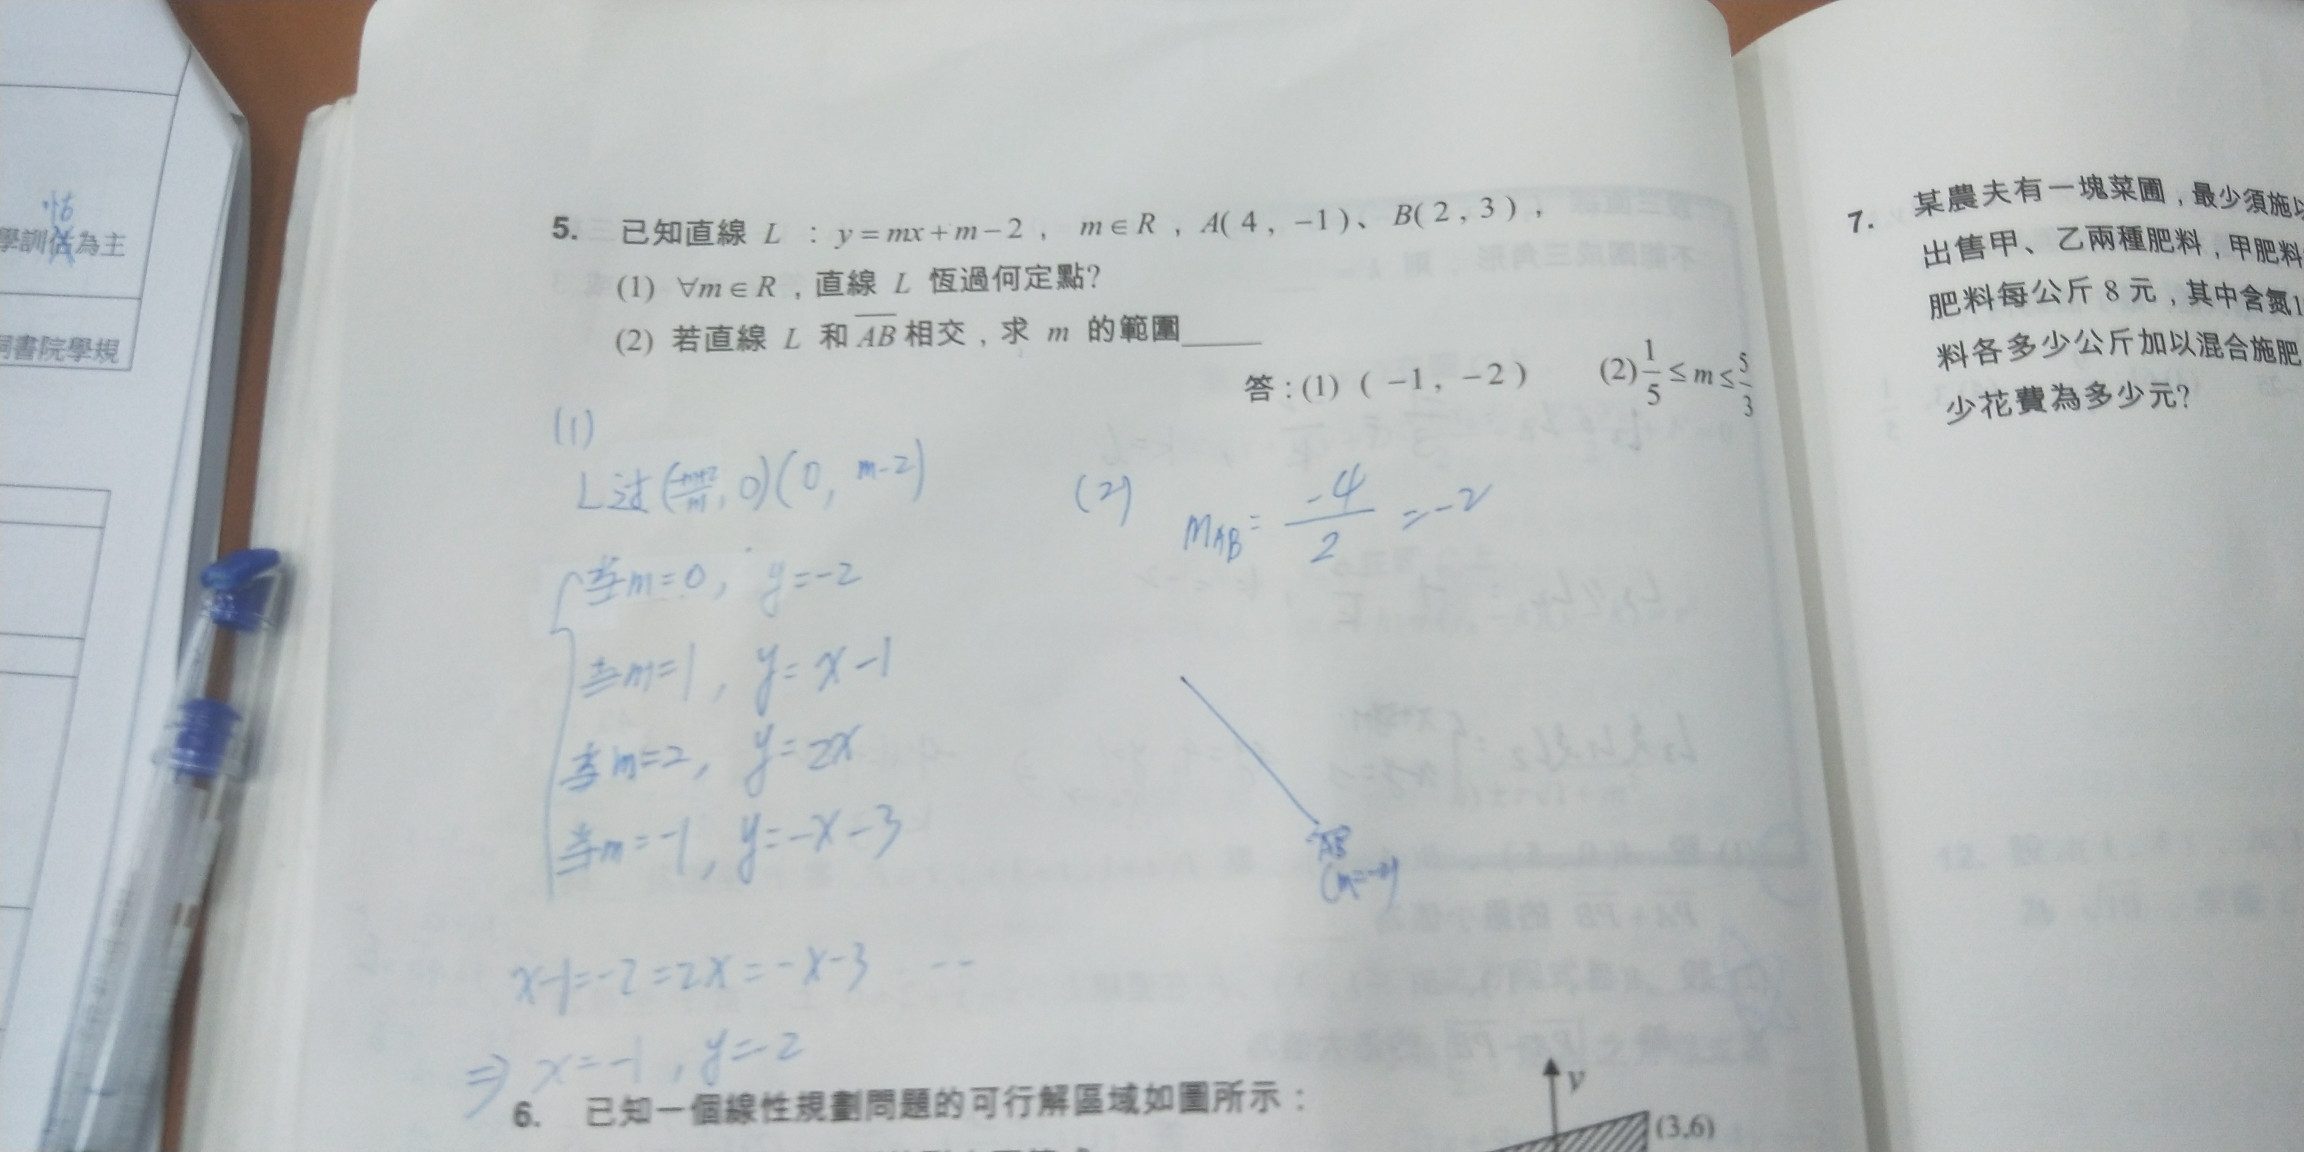 估
學訓估為主
書院學規
5. 已知直線 L : y = mx + m − 2 , m ∈ R , A( 4 , −1 )、 B( 2 , 3 ) ,
(1) ∀m ∈ R , 直線 L 恆過何定點?
(2) 若直線 L 和 AB 相交 , 求 m 的範圍_____
答 : (1) ( −1 , −2 ) (2) 1/5 ≤ m ≤ 5/3
(1)
L过(-m+2/m, 0)(0, m-2)
当m=0, y=-2
当m=1, y=x-1
当m=2, y=2x
当m=-1, y=-x-3
x-1=-2=2x=-x-3 --
⇒ x=-1, y=-2
(2) MAB= -4/2 =-2
AB
(m=-2)
6. 已知一個線性規劃問題的可行解區域如圖所示 :
y
(3,6)
7. 某農夫有一塊菜圃 , 最少須施以
出售甲、乙兩種肥料 , 甲肥料
肥料每公斤 8 元 , 其中含氮1
料各多少公斤加以混合施肥
少花費為多少元?